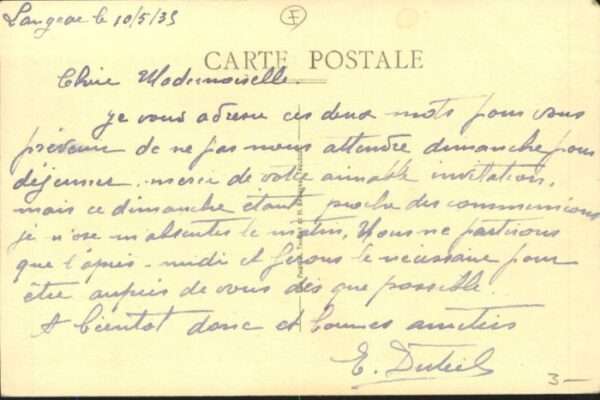 Langeac le 10/5/35
F
CARTE POSTALE
Chère Mademoiselle.
Je vous adresse ces deux mots pour vous
prévenir de ne pas nous attendre dimanche pour
déjeuner. merci de votre aimable invitation,
mais ce dimanche étant proche des communions
je n'ose m'absenter le matin. Nous ne partirons
que l'après-midi et ferons le nécessaire pour
être auprès de vous dès que possible.
A bientot donc et bonnes amitiés
E. Duteil
3-